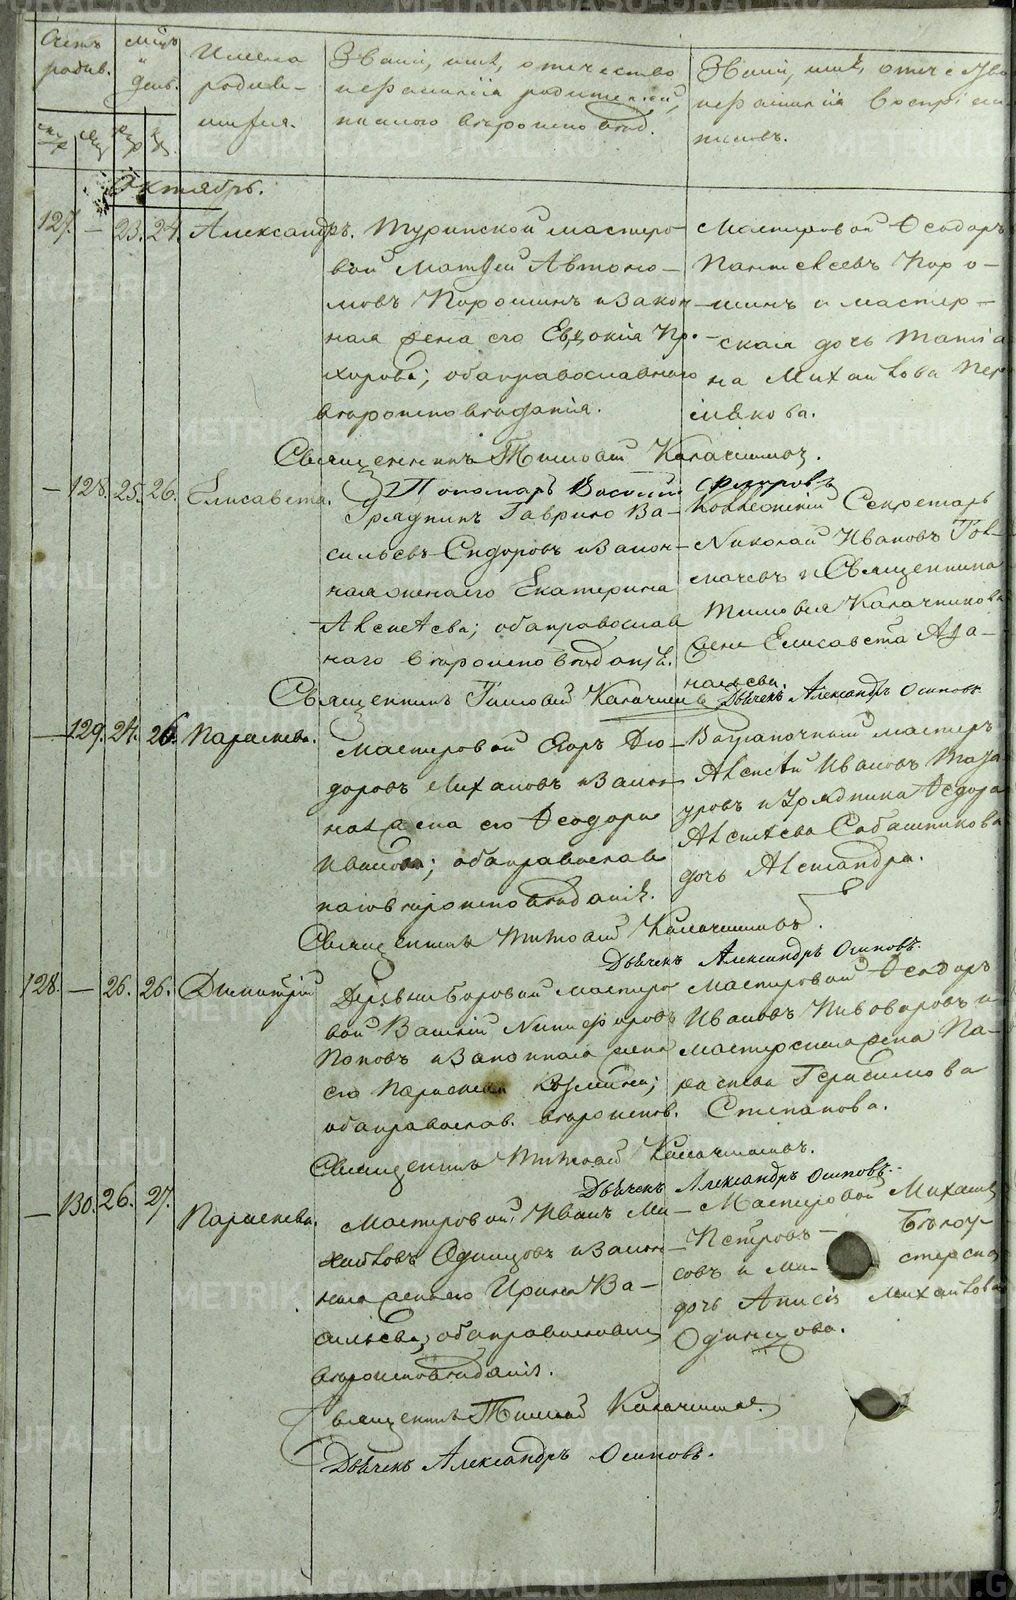 Счетъ родив.
мѣцъ и день.
Имена родив-
шихся.
Званіе, имя, отечество
и фамилія родителей,
и какого вѣроисповѣд.
Званіе, имя, отечество
и фамилія воспріем-
никовъ.
Октябрь.
127. — 23. 24. Александръ.
Туринской мастеро-
вой Матѳей Автоно-
мовъ Порошинъ и закон-
ная жена его Евдокія Про-
хорова; оба православнаго
вѣроисповѣданія.
Мастеровой Ѳеодоръ
Пантелеевъ Поро-
шинъ и мастер-
ская дочь Татіа-
на Михайлова Пер-
мякова.
Священникъ Тимоѳей Калачниковъ.
Пономарь Василій Флоровъ
— 128. 25. 26. Елисавета.
Урядникъ Гаврило Ва-
сильевъ Сидоровъ и закон-
ная жена его Екатерина
Алексѣева; оба православ
наго вѣроисповѣданія.
Коллежскій Секретарь
Николай Ивановъ Тол-
мачевъ и Священника
Тимоѳея Калачникова
жена Елисавета Ада-
Священникъ Тимоѳей Калачниковъ
Дьячекъ Александръ Осиповъ.
— 129. 24. 26. Параскева.
Мастеровой Егоръ Ѳео-
доровъ и закон-
ная жена его Ѳеодора
Иванова; оба православ
наго вѣроисповѣданія.
мастеръ
Алексѣй Ивановъ
уровъ и Урядника Ѳедора
Алексѣева Сабашникова
дочь Александра.
Священникъ Тимоѳей Калачниковъ.
Дьячекъ Александръ Осиповъ.
128. — 26. 26. Димитрій
Деревни Боровой мастеро
вой Василій Никифоровъ
Поповъ и законная жена
его Параскева Козмина;
оба православ. вѣроиспов.
Мастеровой Ѳеодоръ
Ивановъ Пивоваровъ и
мастерская жена Па-
раскева Герасимова
Степанова.
Священникъ Тимоѳей Калачниковъ.
Дьячекъ Александръ Осиповъ.
— 130. 26. 27. Параскева.
Мастеровой Иванъ Ми-
хайловъ Одинцовъ и закон-
ная жена его Ирина Ва-
сильева; оба православнаго
вѣроисповѣданія.
Мастеровой Михаилъ
Петровъ Бѣлоу-
совъ и ма- стерская
дочь Анисія Михайлова
Одинцова.
Священникъ Тимоѳей Калачниковъ
Дьячекъ Александръ Осиповъ.
METRIKI.GASO-URAL.RU